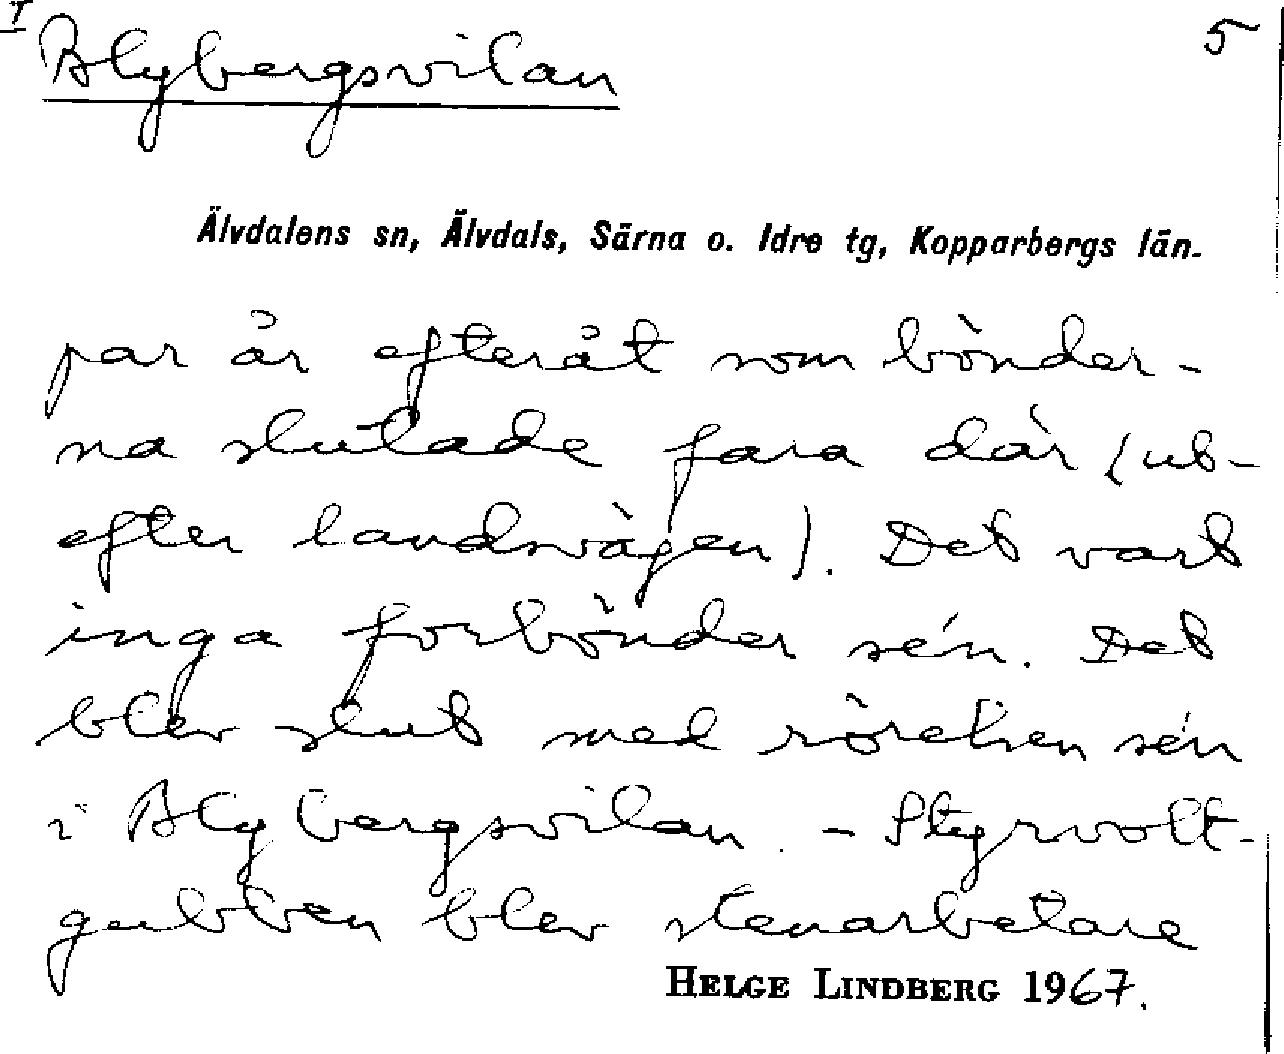 I
Blybergsvilan 5
Älvdalens sn, Älvdals, Särna o. Idre tg, Kopparbergs län.
par år efteråt som bönder-
na slutade fara där (ut-
efter landsvägen). Det vart
inga forbönder sén. Det
blev slut med rörelsen sén
i Blybergsvilan. - Styrvolt-
gubben blev stenarbetare
HELGE LINDBERG 1967.